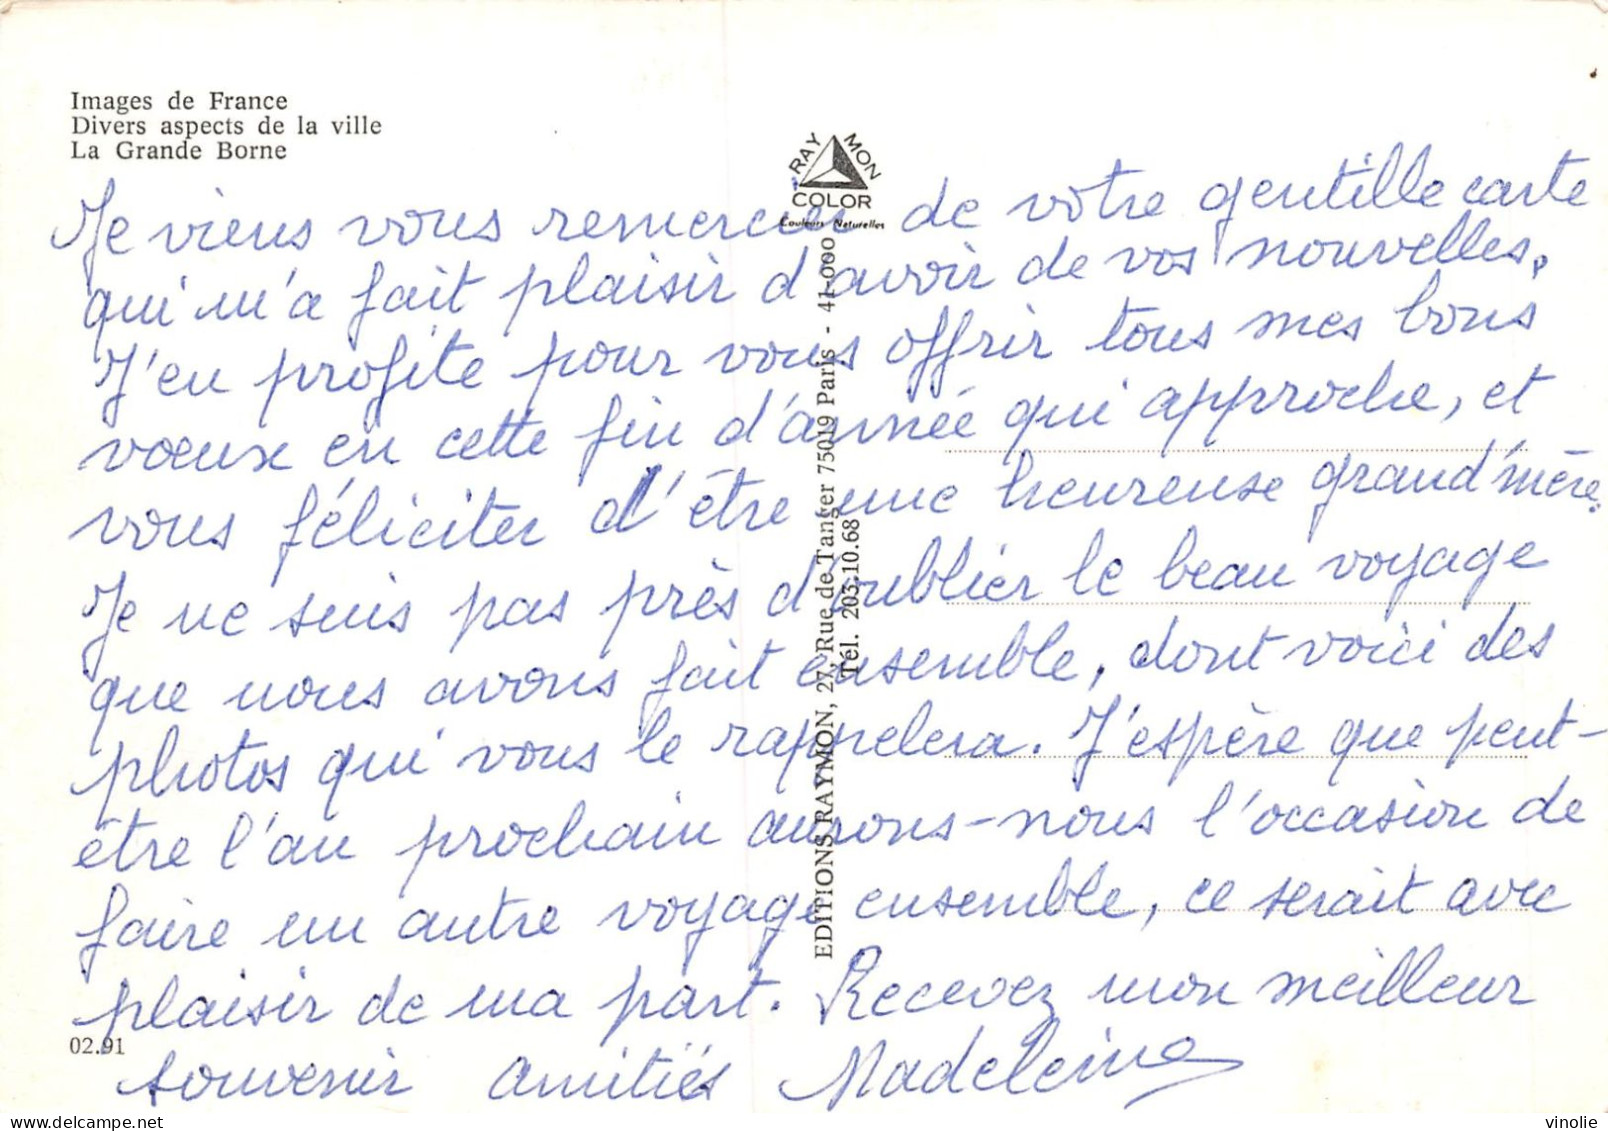 Images de France
Divers aspects de la ville
La Grande Borne
RAYMON
COLOR
Couleurs Naturelles
Je viens vous remercier de votre gentille carte
qui m'a fait plaisir d'avoir de vos nouvelles.
J'en profite pour vous offrir tous mes bons
voeux en cette fin d'année qui approche, et
vous féliciter d'être une heureuse grand'mère.
Je ne suis pas près d'oublier le beau voyage
que nous avons fait ensemble, dont voici des
photos qui vous le rappelera. J'espère que peut-
être l'an prochain aurons-nous l'occasion de
faire un autre voyage ensemble, ce serait avec
plaisir de ma part. Recevez mon meilleur
souvenir amitiés Madeleine
EDITIONS RAYMON, 27, Rue de Tanger 75019 Paris - 41-000
Tél. 203.10.68
02.91
delcampe.net
vinolie